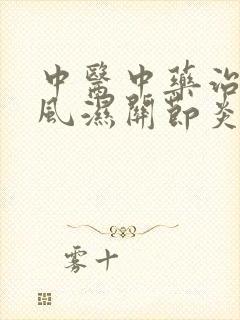 中醫中藥治
風濕關節炎
雾十